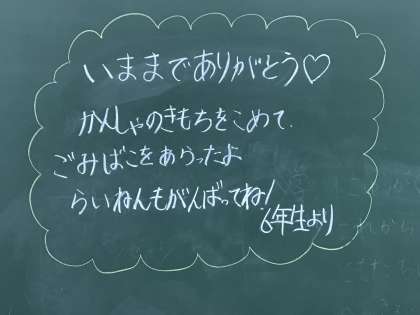 いままでありがとう♡
かんしゃのきもちをこめて、
ごみばこをあらったよ
らいねんもがんばってね！
6年生より